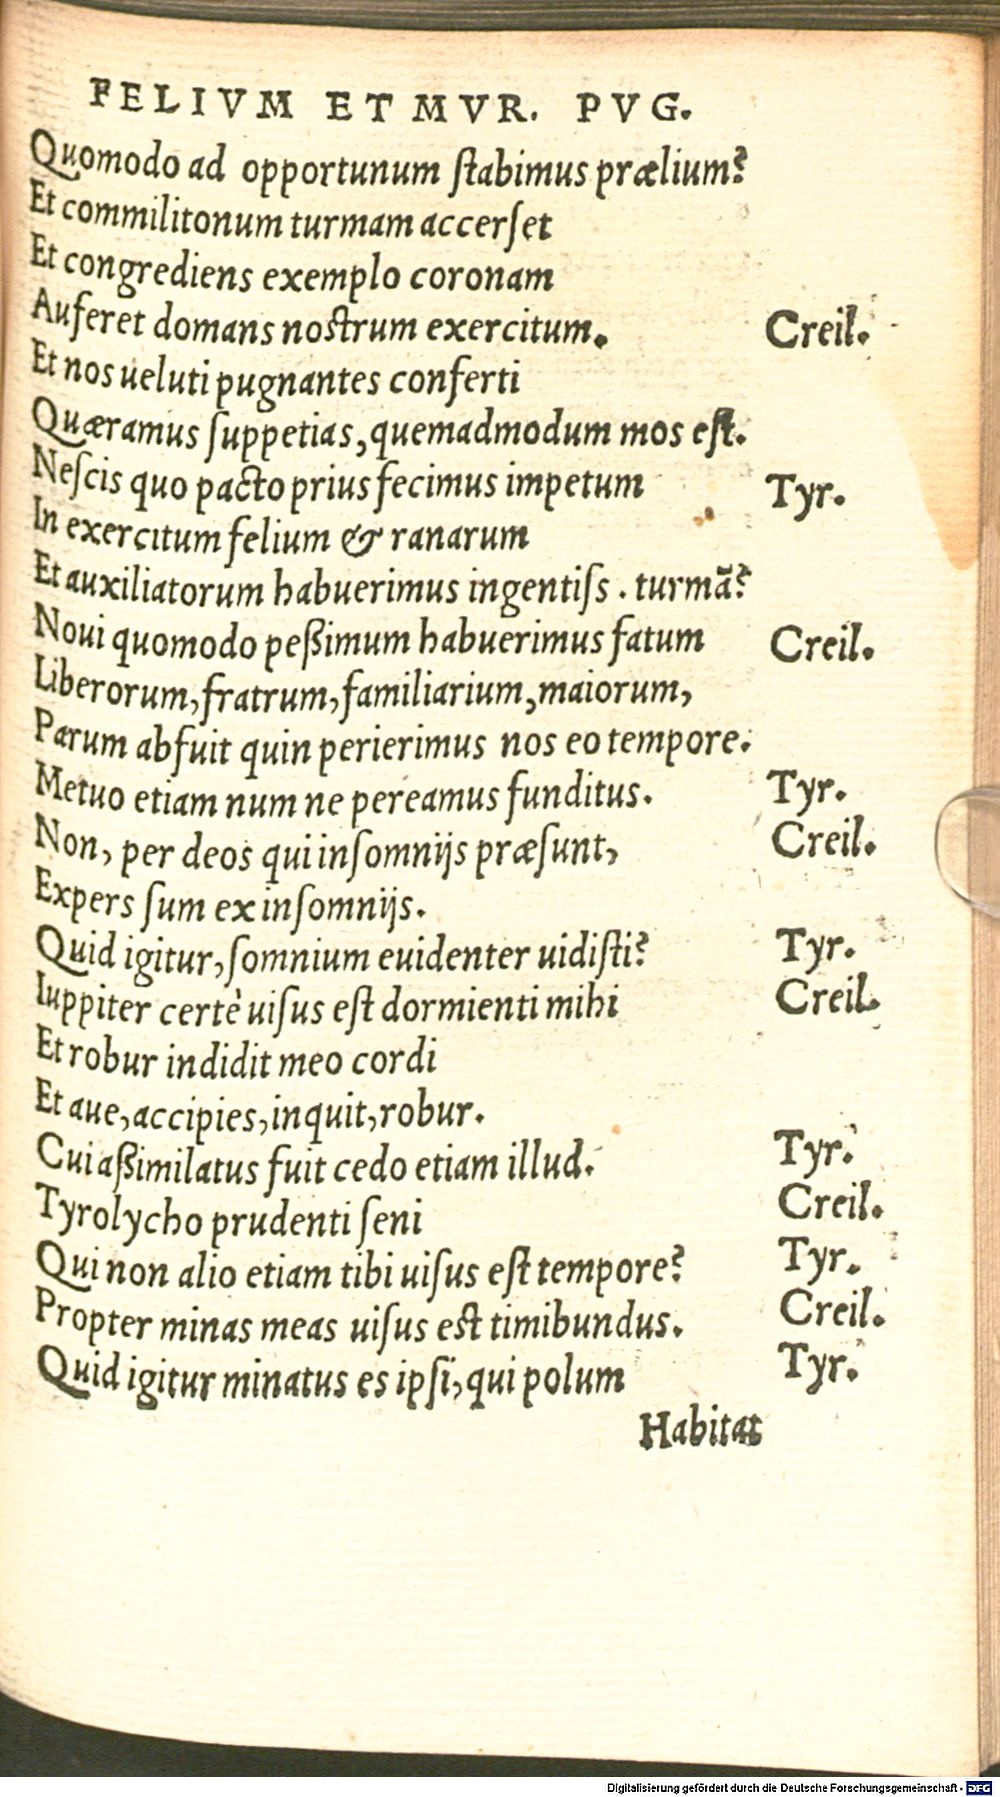 FELIVM ET MVR. PVG.
Quomodo ad opportunum ſtabimus prælium?
Et commilitonum turmam accerſet
Et congrediens exemplo coronam
Auferet domans noſtrum exercitum. Creil.
Et nos ueluti pugnantes conferti
Quæramus ſuppetias, quemadmodum mos eſt.
Neſcis quo pacto prius fecimus impetum Tyr.
In exercitum felium & ranarum
Et auxiliatorum habuerimus ingentiſs. turmā?
Noui quomodo peßimum habuerimus fatum Creil.
Liberorum, fratrum, familiarium, maiorum,
Parum abfuit quin perierimus nos eo tempore.
Metuo etiam num ne pereamus funditus. Tyr.
Non, per deos qui inſomnijs præſunt, Creil.
Expers ſum ex inſomnijs.
Quid igitur, ſomnium euidenter uidiſti? Tyr.
Iuppiter certè uiſus eſt dormienti mihi Creil.
Et robur indidit meo cordi
Et aue, accipies, inquit, robur.
Cui aßimilatus fuit cedo etiam illud. Tyr.
Tyrolycho prudenti ſeni Creil.
Qui non alio etiam tibi uiſus eſt tempore? Tyr.
Propter minas meas uiſus eſt timibundus. Creil.
Quid igitur minatus es ipſi, qui polum Tyr.
Habitat
Digitalisierung gefördert durch die Deutsche Forschungsgemeinschaft - DFG